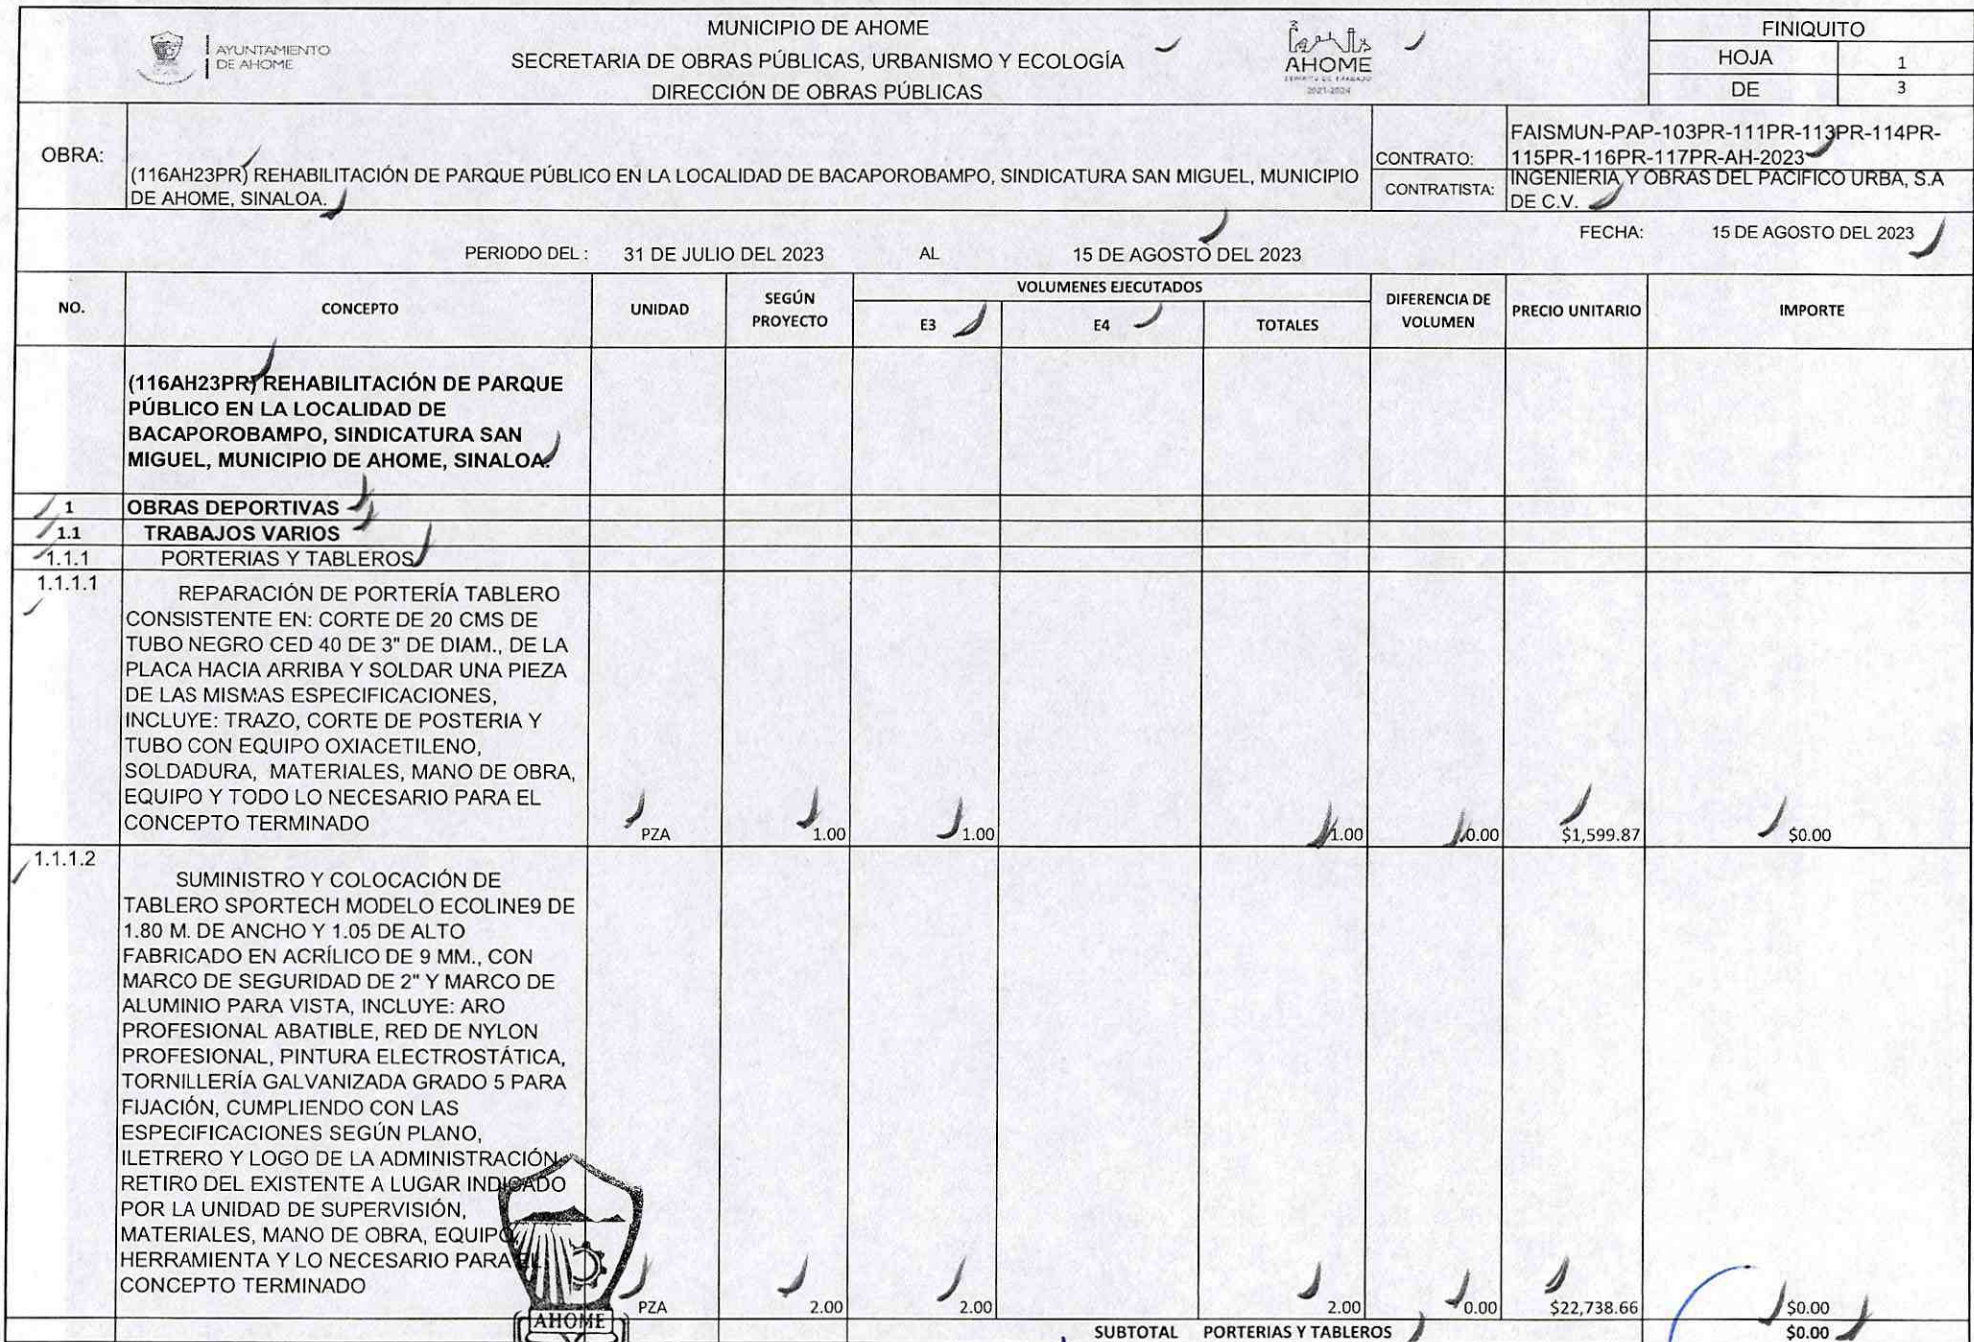 AYUNTAMIENTO
DE AHOME
MUNICIPIO DE AHOME
SECRETARIA DE OBRAS PÚBLICAS, URBANISMO Y ECOLOGÍA
DIRECCIÓN DE OBRAS PÚBLICAS
AHOME
2021-2024
FINIQUITO
HOJA 1
DE 3
OBRA:
(116AH23PR) REHABILITACIÓN DE PARQUE PÚBLICO EN LA LOCALIDAD DE BACAPOROBAMPO, SINDICATURA SAN MIGUEL, MUNICIPIO
DE AHOME, SINALOA.
CONTRATO:
FAISMUN-PAP-103PR-111PR-113PR-114PR-
115PR-116PR-117PR-AH-2023
CONTRATISTA:
INGENIERIA Y OBRAS DEL PACIFICO URBA, S.A
DE C.V.
FECHA: 15 DE AGOSTO DEL 2023
PERIODO DEL : 31 DE JULIO DEL 2023 AL 15 DE AGOSTO DEL 2023
NO.
CONCEPTO
UNIDAD
SEGÚN
PROYECTO
VOLUMENES EJECUTADOS
E3 E4 TOTALES
DIFERENCIA DE
VOLUMEN
PRECIO UNITARIO
IMPORTE
(116AH23PR) REHABILITACIÓN DE PARQUE
PÚBLICO EN LA LOCALIDAD DE
BACAPOROBAMPO, SINDICATURA SAN
MIGUEL, MUNICIPIO DE AHOME, SINALOA.
1 OBRAS DEPORTIVAS
1.1 TRABAJOS VARIOS
1.1.1 PORTERIAS Y TABLEROS
1.1.1.1
REPARACIÓN DE PORTERÍA TABLERO
CONSISTENTE EN: CORTE DE 20 CMS DE
TUBO NEGRO CED 40 DE 3" DE DIAM., DE LA
PLACA HACIA ARRIBA Y SOLDAR UNA PIEZA
DE LAS MISMAS ESPECIFICACIONES,
INCLUYE: TRAZO, CORTE DE POSTERIA Y
TUBO CON EQUIPO OXIACETILENO,
SOLDADURA, MATERIALES, MANO DE OBRA,
EQUIPO Y TODO LO NECESARIO PARA EL
CONCEPTO TERMINADO
PZA 1.00 1.00 1.00 0.00 $1,599.87 $0.00
1.1.1.2
SUMINISTRO Y COLOCACIÓN DE
TABLERO SPORTECH MODELO ECOLINE9 DE
1.80 M. DE ANCHO Y 1.05 DE ALTO
FABRICADO EN ACRÍLICO DE 9 MM., CON
MARCO DE SEGURIDAD DE 2" Y MARCO DE
ALUMINIO PARA VISTA, INCLUYE: ARO
PROFESIONAL ABATIBLE, RED DE NYLON
PROFESIONAL, PINTURA ELECTROSTÁTICA,
TORNILLERÍA GALVANIZADA GRADO 5 PARA
FIJACIÓN, CUMPLIENDO CON LAS
ESPECIFICACIONES SEGÚN PLANO,
ILETRERO Y LOGO DE LA ADMINISTRACIÓN,
RETIRO DEL EXISTENTE A LUGAR INDICADO
POR LA UNIDAD DE SUPERVISIÓN,
MATERIALES, MANO DE OBRA, EQUIPO,
HERRAMIENTA Y LO NECESARIO PARA EL
CONCEPTO TERMINADO
PZA 2.00 2.00 2.00 0.00 $22,738.66 $0.00
AHOME
SUBTOTAL PORTERIAS Y TABLEROS $0.00